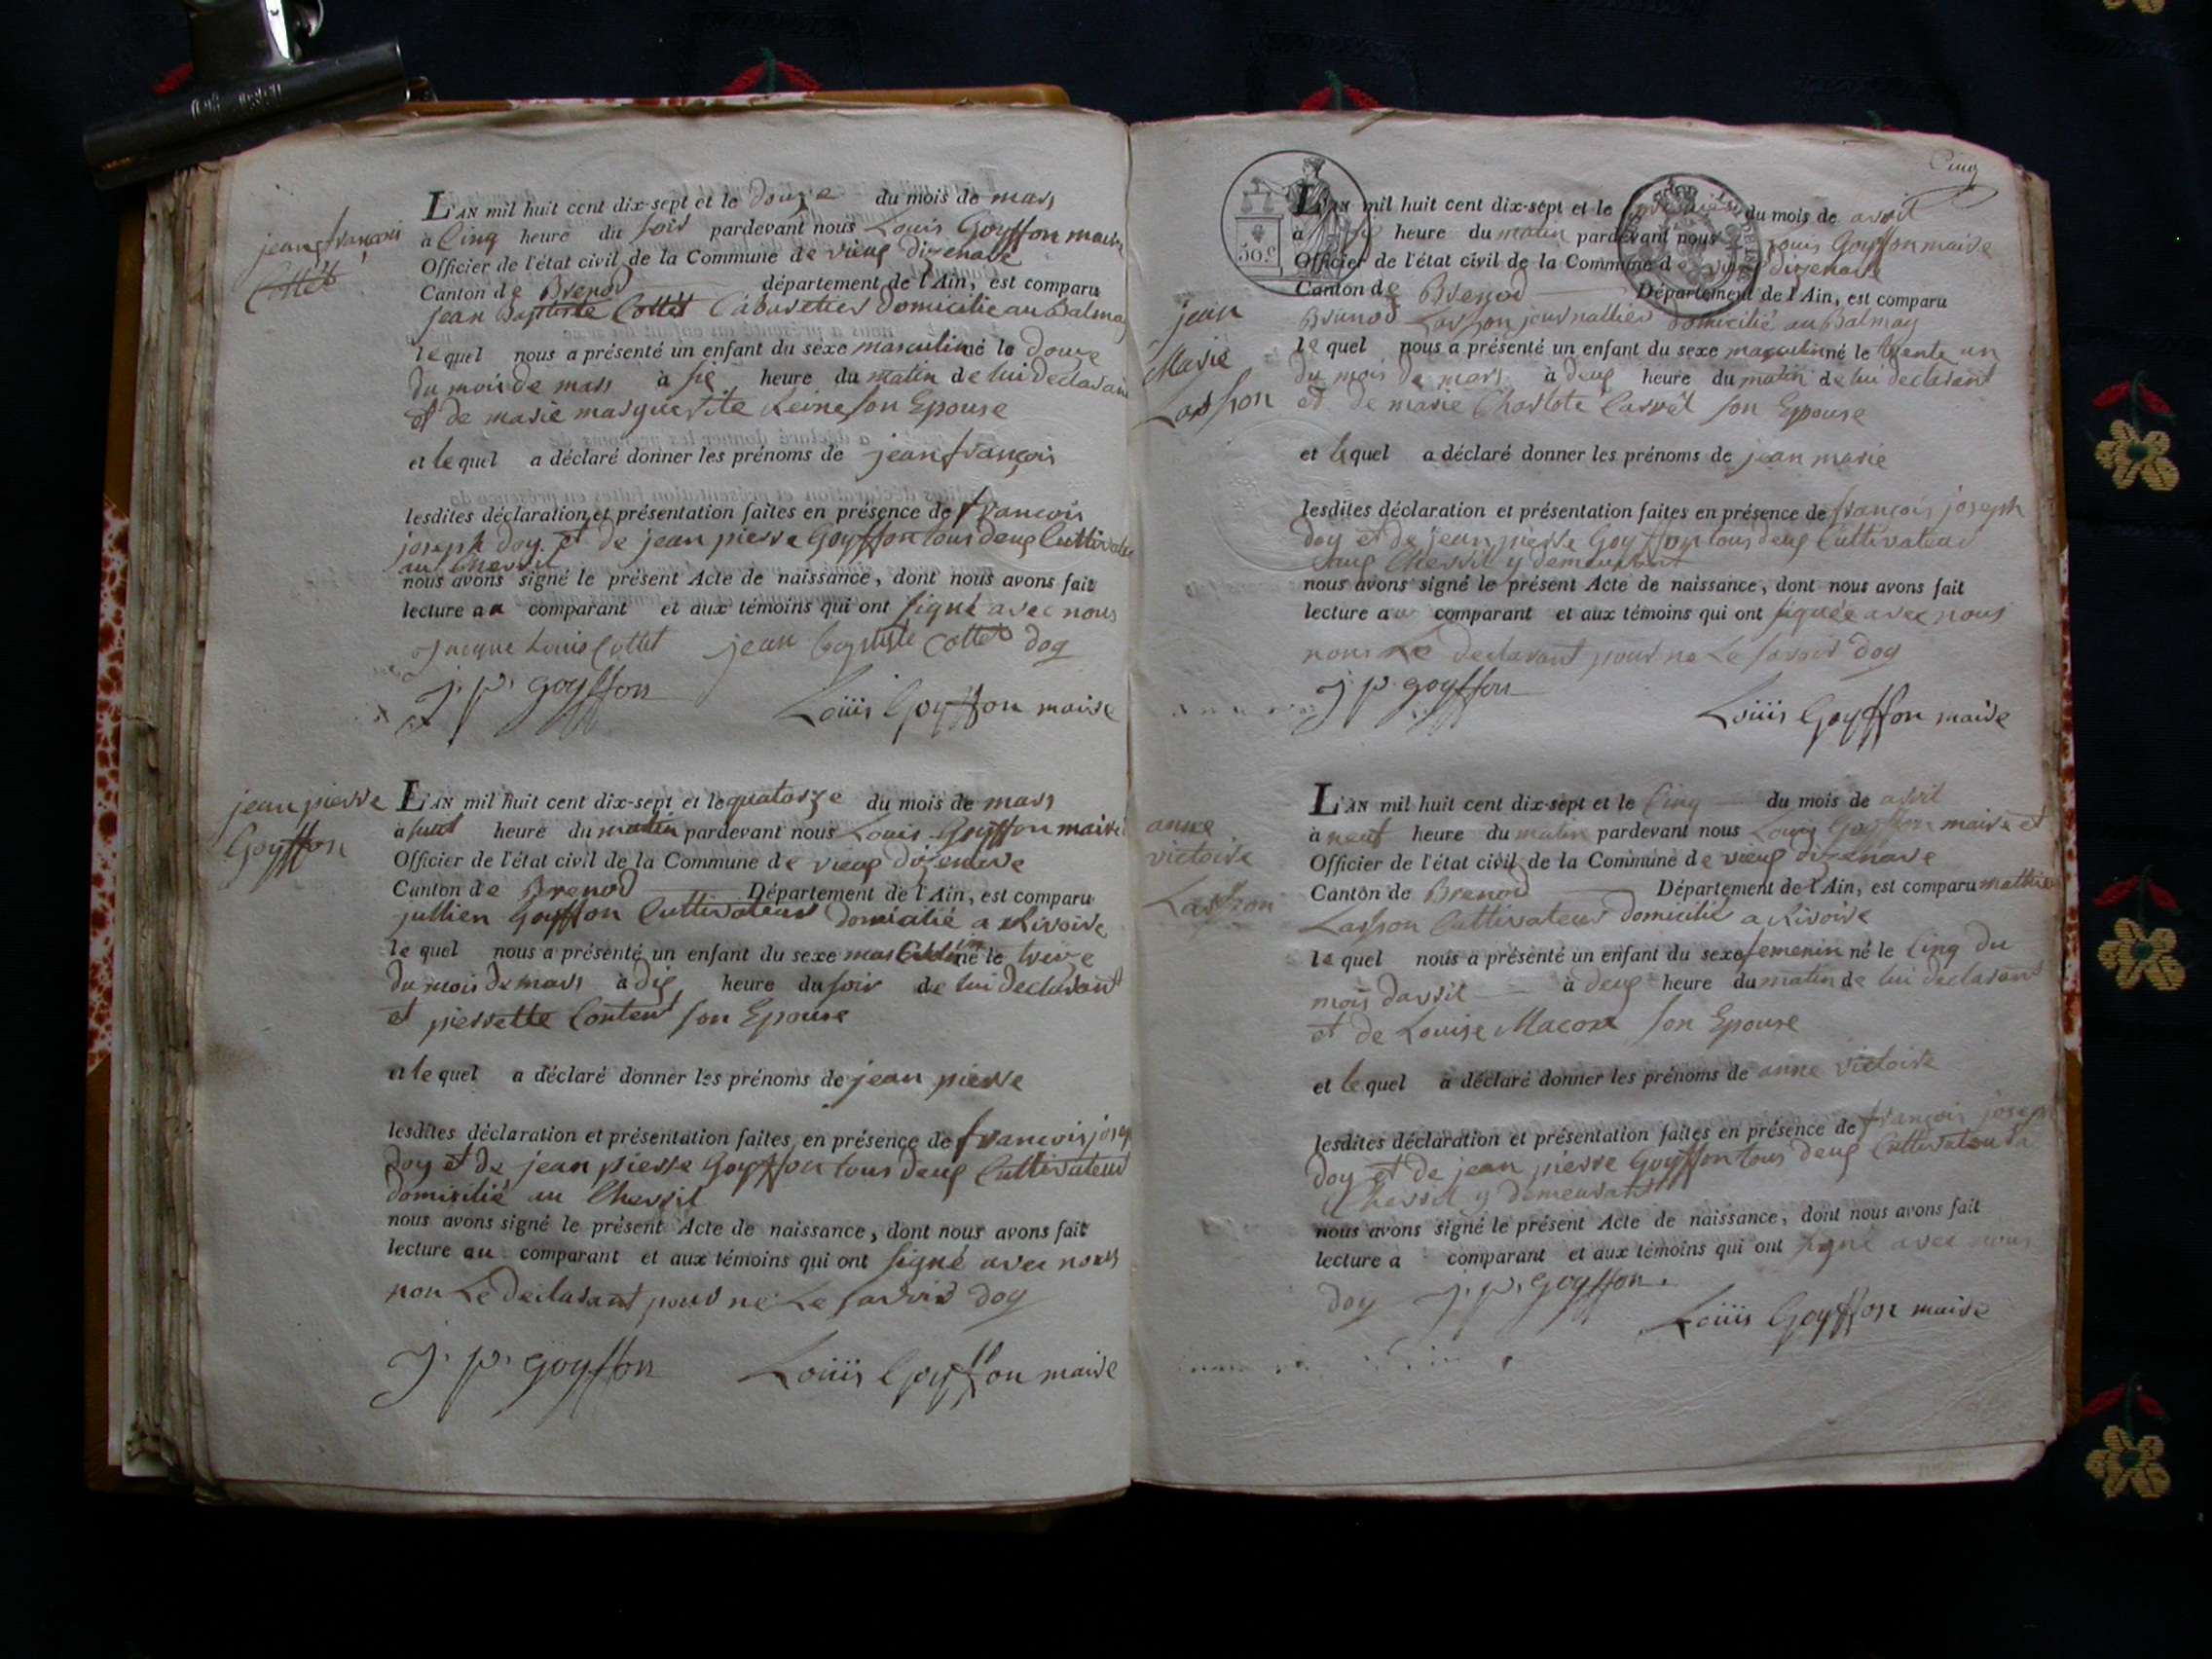 jean françois
Collet
L'AN mil huit cent dix-sept et le douze du mois de mars
à Cinq heure du soir pardevant nous Louis Goyffon maire
Officier de l'état civil de la Commune de vieup dizenave
Canton de Brenod département de l'Ain, est comparu
jean Baptiste Collet Cabaretier domicilie au Balmay
lequel nous a présenté un enfant du sexe masculin né le douze
du mois de mars à sig heure du matin de lui declarant
et de marie marguerite Reine son Epouse
et lequel a déclaré donner les prénoms de jean françois
lesdites déclaration et présentation faites en présence de francois
joseph doy et de jean pierre Goyffon tous deup Cultivateur
au Chevril
nous avons signé le présent Acte de naissance, dont nous avons fait
lecture au comparant et aux témoins qui ont signé avec nous
Jacque Louis Collet jean baptiste Collet doy
J. p. goyffon Loüis Goyffon maire
jean pierre
Goyffon
L'AN mil huit cent dix-sept et le quatorze du mois de mars
à huit heure du matin pardevant nous Louis Goyffon maire
Officier de l'état civil de la Commune de vieup dizenave
Canton de Brenod Département de l'Ain, est comparu
jullien Goyffon Cultivateur domicilié a Rivoire
le quel nous a présenté un enfant du sexe masculin né le treize
du mois de mars à dig heure du soir de lui declarant
et pierrette Content son Epouse
et le quel a déclaré donner les prénoms de jean pierre
lesdites déclaration et présentation faites en présence de francois josep
doy et de jean pierre Goyffon tous deup Cultivateur
domicilié au Chevril
nous avons signé le présent Acte de naissance, dont nous avons fait
lecture au comparant et aux témoins qui ont signé avec nous
non Le declarant pour ne Le savoir doy
J. p. goyffon Loüis Goyffon maire
Cinq
50 c
jean
Marie
Lasson
L'AN mil huit cent dix-sept et le premier du mois de avril
à heure du matin pardevant nous Louis Goyffon maire
Officier de l'état civil de la Commune de vieup dizenave
Canton de Brenod Département de l'Ain, est comparu
Brunod Lasson journallier domicilié au Balmay
le quel nous a présenté un enfant du sexe masculin né le trente un
du mois de mars à deup heure du matin de lui declarant
et de marie Charlote Carrel son Epouse
et lequel a déclaré donner les prénoms de jean marie
lesdites déclaration et présentation faites en présence de francois joseph
doy et de jean pierre Goyffon tous deup Cultivateur
Chevril y demeurant
nous avons signé le présent Acte de naissance, dont nous avons fait
lecture au comparant et aux témoins qui ont signée avec nous
non Le declarant pour ne Le savoir doy
J p. goyffon
Loüis Goyffon maire
anne
victoire
Lasson
L'AN mil huit cent dix-sept et le Cinq du mois de avril
à neuf heure du matin pardevant nous Louis Goyffon maire et
Officier de l'état civil de la Commune de vieup dizenave
Canton de Brenod Département de l'Ain, est comparu mathieu
Lasson Cultivateur domicilié a Rivoire
le quel nous a présenté un enfant du sexe femenin né le Cinq du
mois davril à deup heure du matin de lui declarant
et de Louise Macon son Epouse
et lequel a déclaré donner les prénoms de anne victoire
lesdites déclaration et présentation faites en présence de françois joseph
doy et de jean pierre Goyffon tous deup Cultivateur
Chevril y demeurant
nous avons signé le présent Acte de naissance, dont nous avons fait
lecture a comparant et aux témoins qui ont signé avec nous
doy J. p. goyffon.
Loüis Goyffon maire